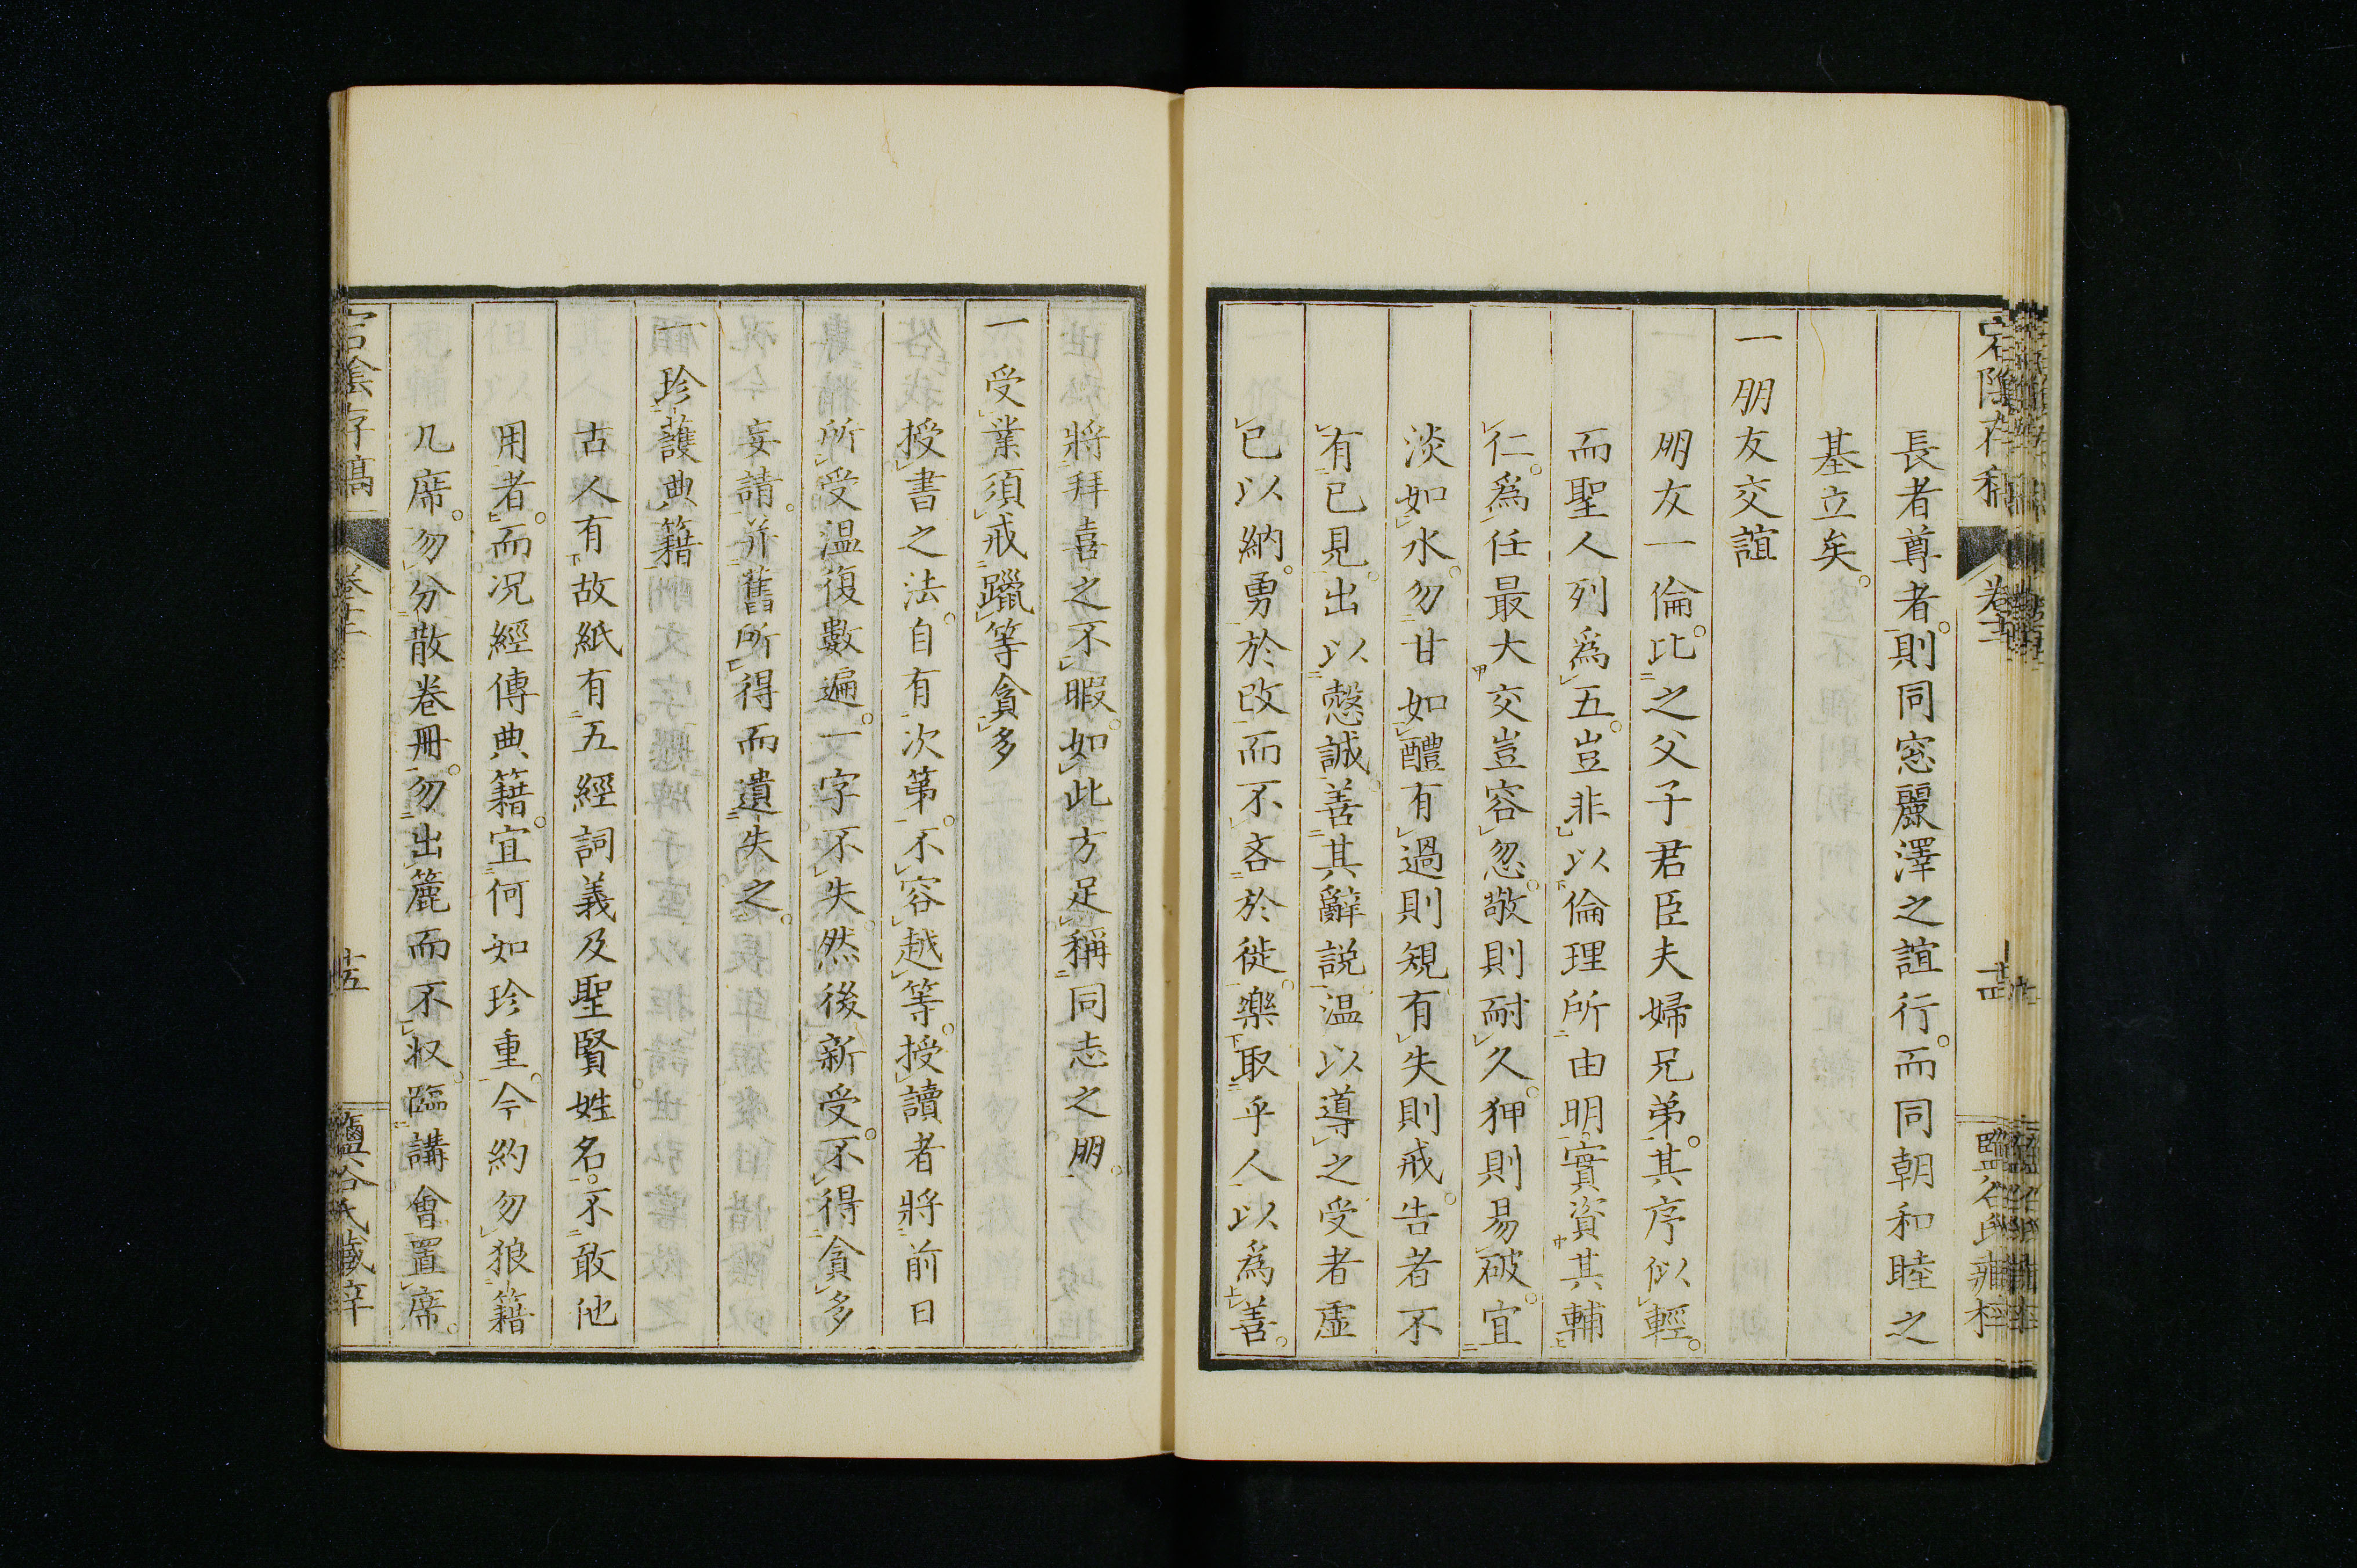 長者尊者。則同窓麗澤之誼行。而同朝和睦之
基立矣。
一朋友交誼
朋友一倫。比之父子君臣夫婦兄弟。其序似輕。
而聖人列爲五。豈非以倫理所由明。實資其輔
仁。爲任最大交豈容忽。敬則耐久。狎則易破。宜
淡如水。勿甘如醴有過則規有失則戒。告者不
有己見。出以愨誠。善其辭説温以導之受者虛
己以納。勇於改而不吝於徙。樂取乎人以爲善。
將拜喜之不暇。如此方足稱同志之朋。
一受業須戒躐等貪多
授書之法。自有次第。不容越等。授讀者將前日
所受温復數遍。一字不失。然後新受。不得貪多
妄請。并舊所得而遺失之。
一珍護典籍
古人有故紙有五經詞義及聖賢姓名。不敢他
用者。而况經傳典籍。宜何如珍重。今約勿狼籍
几席。勿分散卷冊。勿出簏而不収。臨講會置席。
宕陰存稿
卷十二
十五
鹽谷氏藏梓